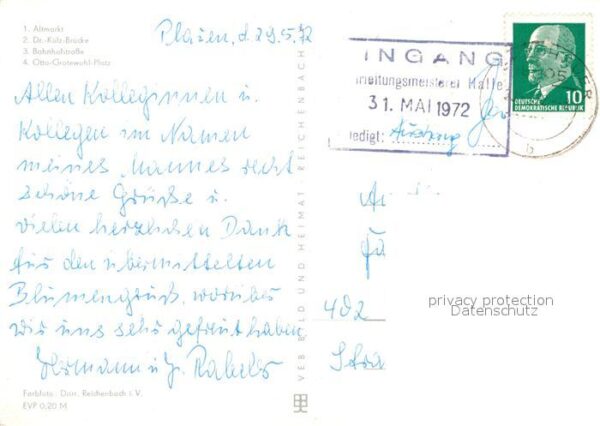 1. Altmarkt
2. Dr.-Külz-Brücke
3. Bahnhofstraße
4. Otto-Grotewohl-Platz
Plauen, d. 29.5.72
Allen Kolleginnen u.
Kollegen im Namen
meines Mannes recht
schöne Grüße u.
vielen herzlichen Dank
für den übermittelten
Blumengruß, worüber
wir uns sehr gefreut haben.
Hermann u.
Farbfoto: Darr, Reichenbach i. V.
EVP 0,20 M
VEB BILD UND HEIMAT REICHENBACH
INGANG
eitungsmeisterei Halle
31. MAI 1972
ledigt:
DEUTSCHE
DEMOKRATISCHE REPUBLIK
10
b
402
privacy protection
Datenschutz